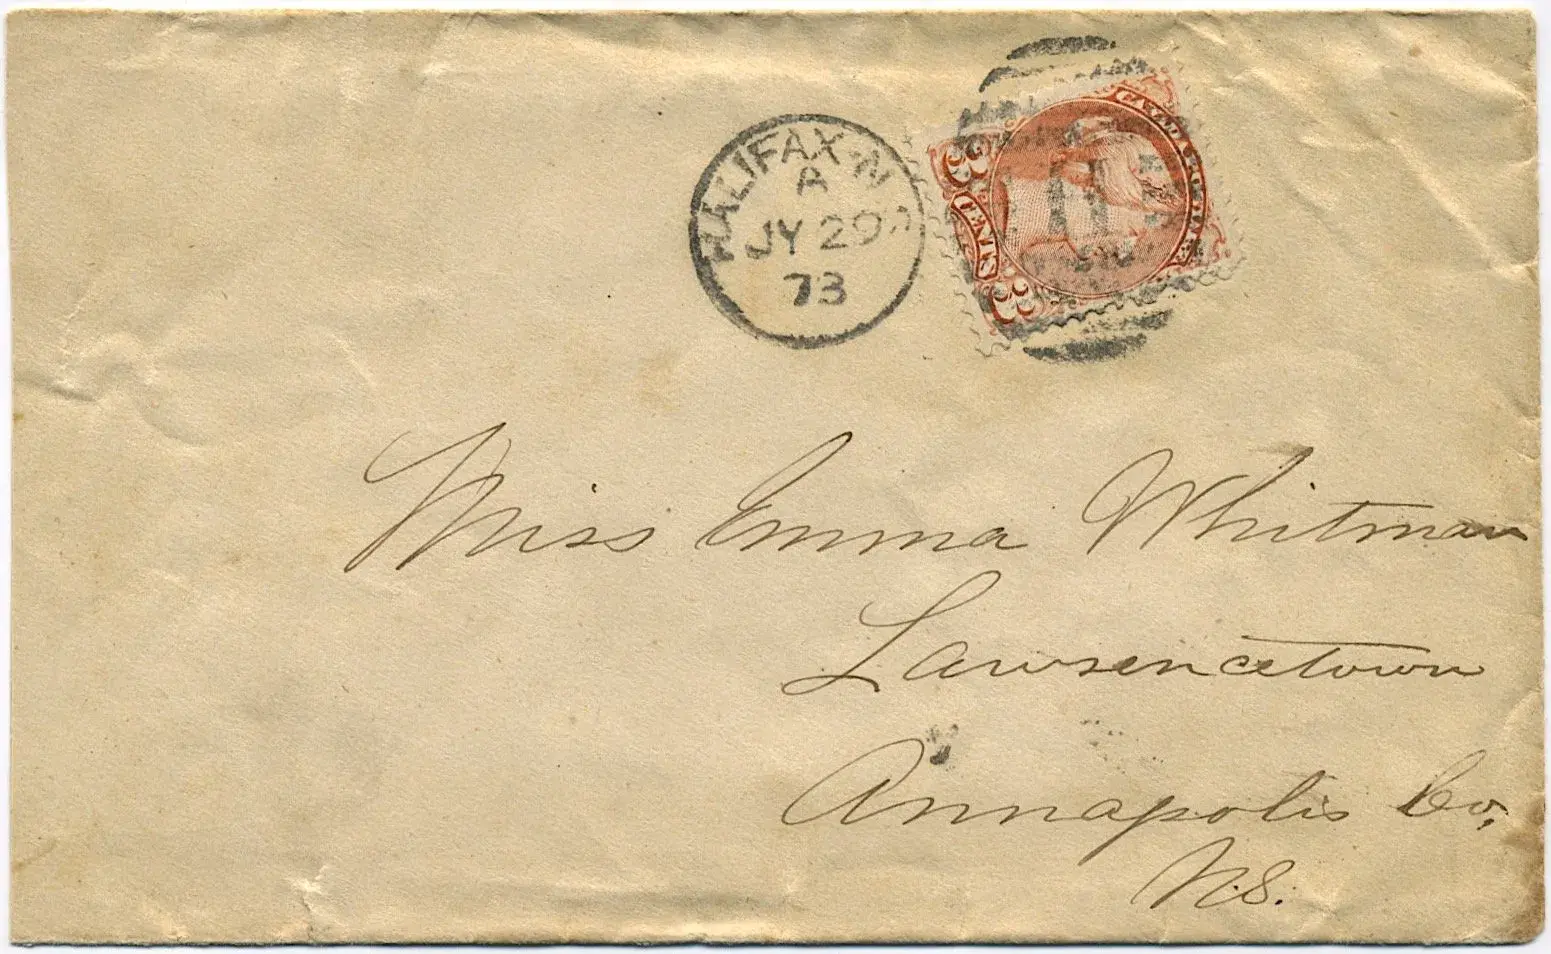 HALIFAX·N
A
JY 29
73
CANADA POSTAGE
3 CENTS 3
Miss Emma Whitman
Lawrencetown
Annapolis Co,
N.S.